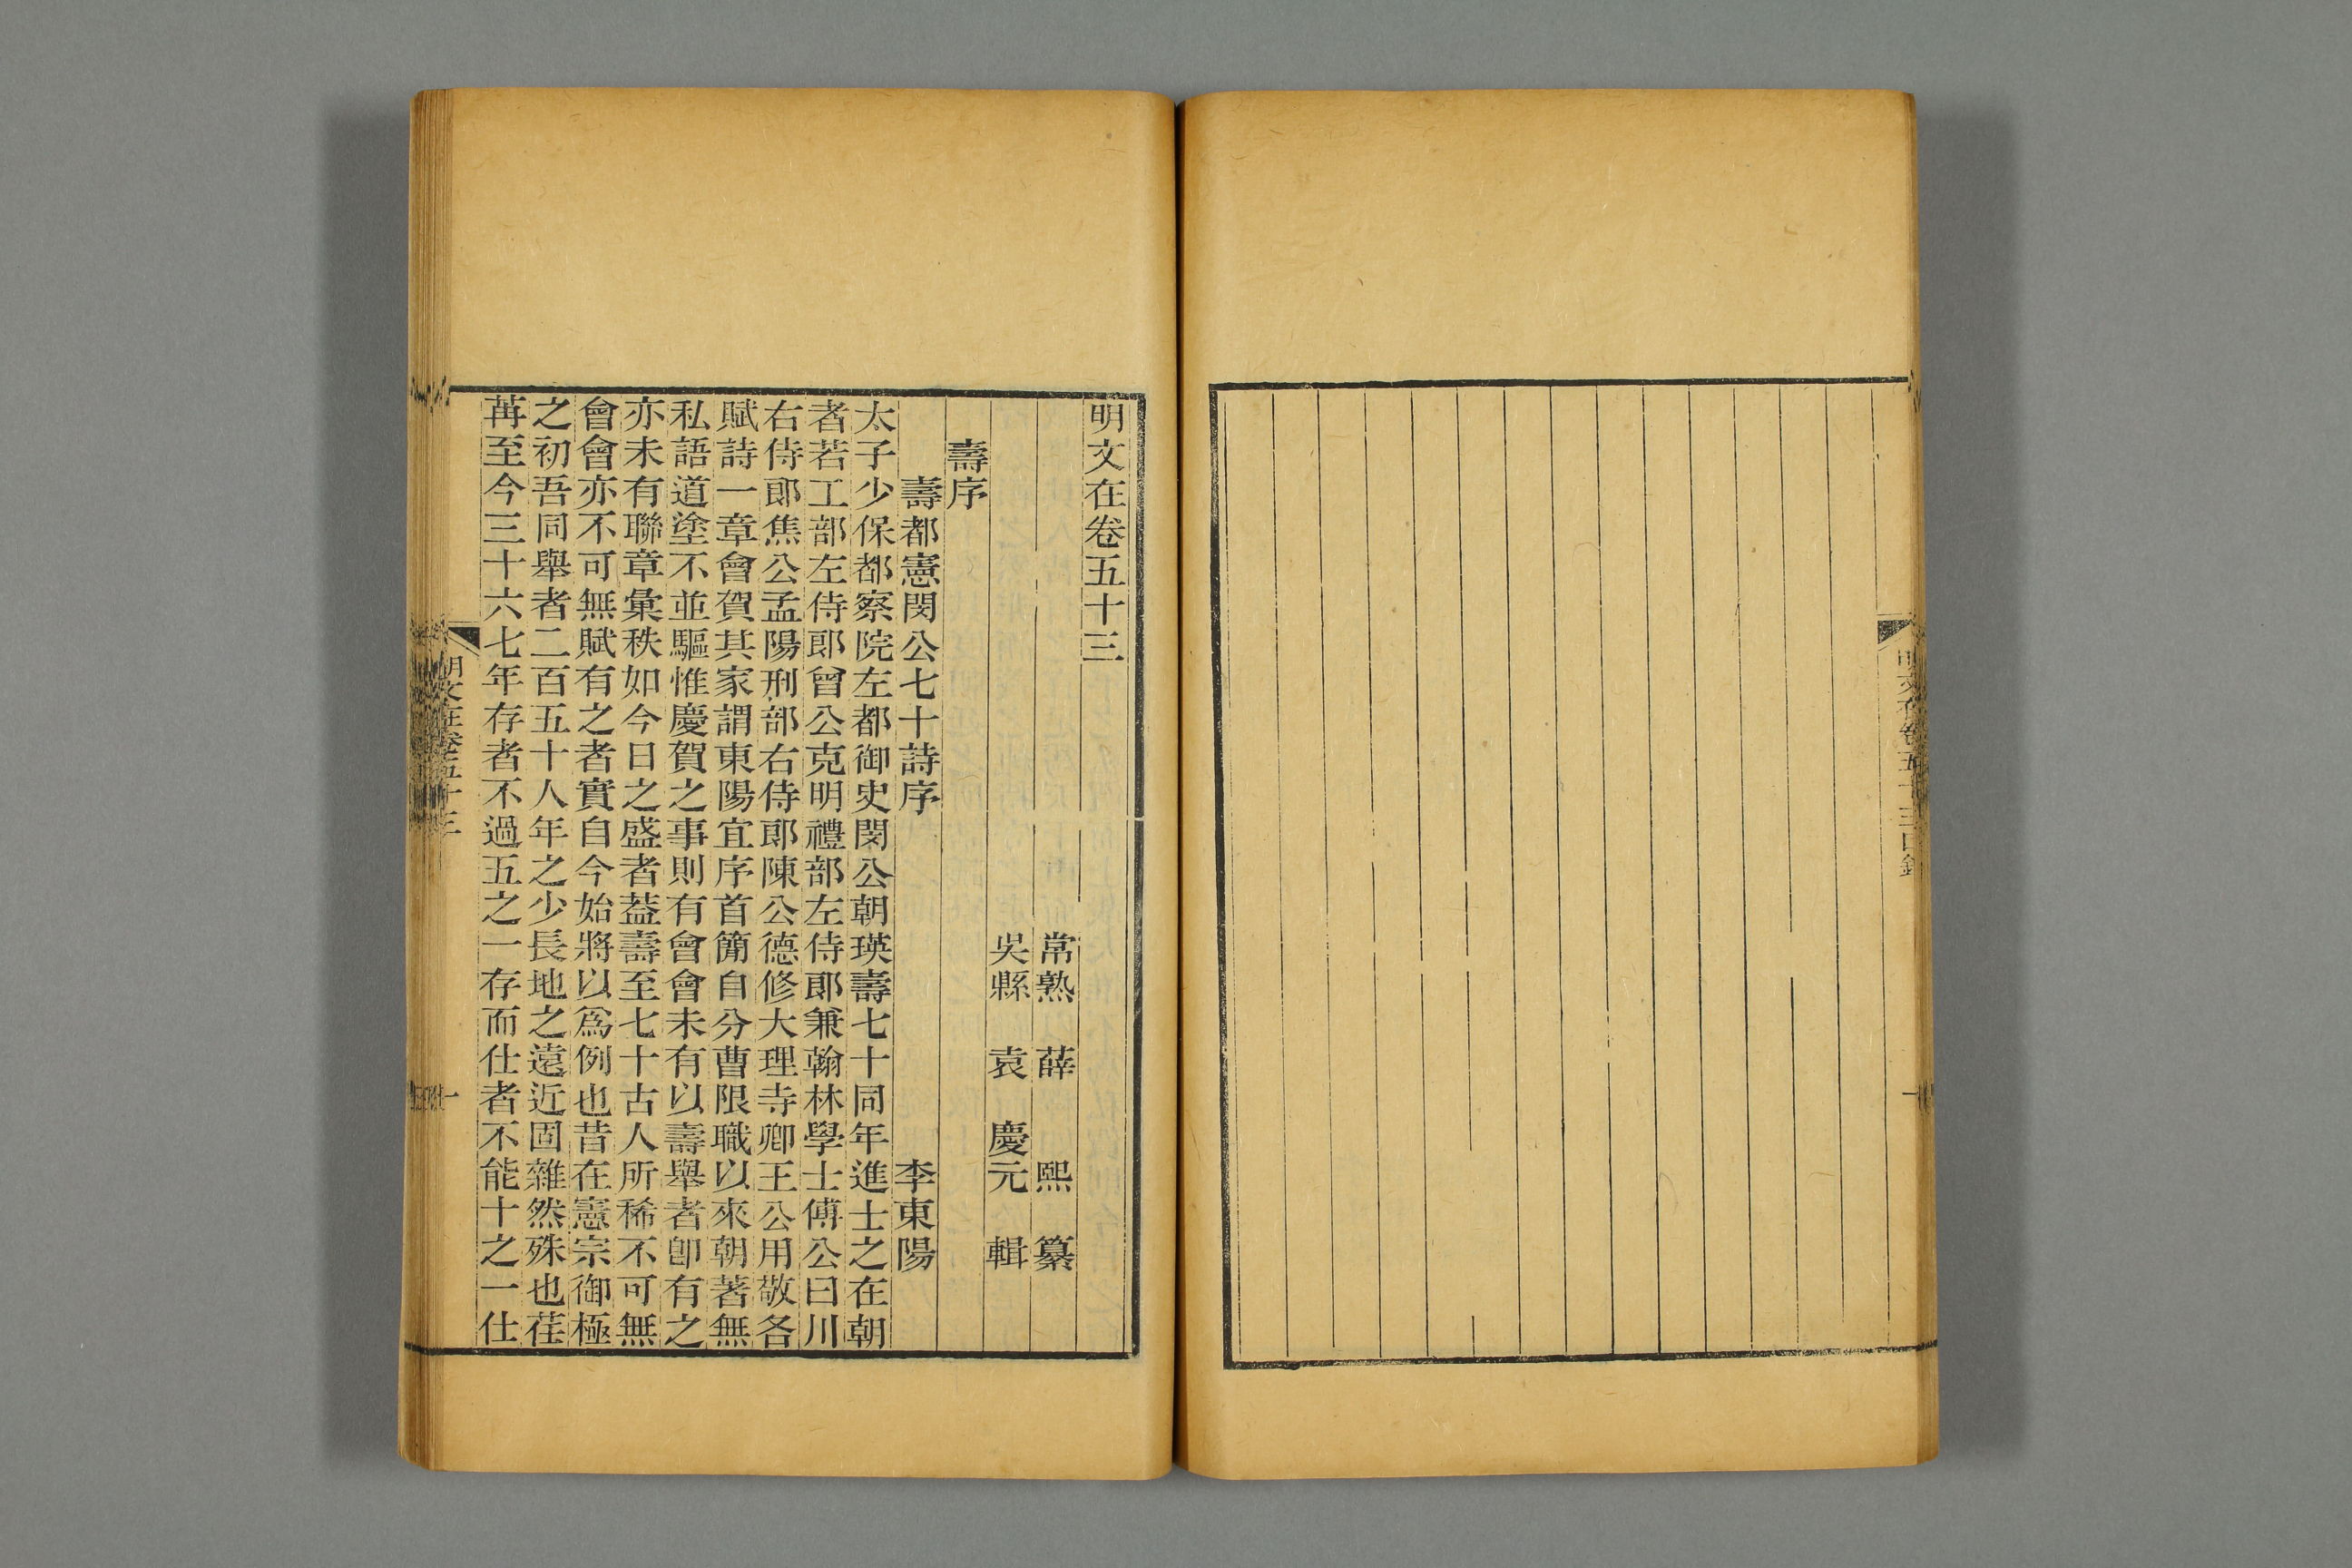 明文在卷五十三目錄
一
明文在卷五十三
常熟 薛 熙 纂
吳縣 袁 慶元 輯
壽序
壽都憲閔公七十詩序 李東陽
太子少保都察院左都御史閔公朝瑛壽七十同年進士之在朝
者若工部左侍郎曾公克明禮部左侍郎兼翰林學士傅公曰川
右侍郎焦公孟陽刑部右侍郎陳公德修大理寺卿王公用敬各
賦詩一章會賀其家謂東陽宜序首簡自分曹限職以來朝著無
私語道塗不並驅惟慶賀之事則有會會未有以壽舉者卽有之
亦未有聯章彙秩如今日之盛者葢壽至七十古人所稀不可無
會會亦不可無賦有之者實自今始將以爲例也昔在憲宗御極
之初吾同舉者二百五十人年之少長地之遠近固雜然殊也荏
苒至今三十六七年存者不過五之一存而仕者不能十之一仕
明文在卷五十三
一